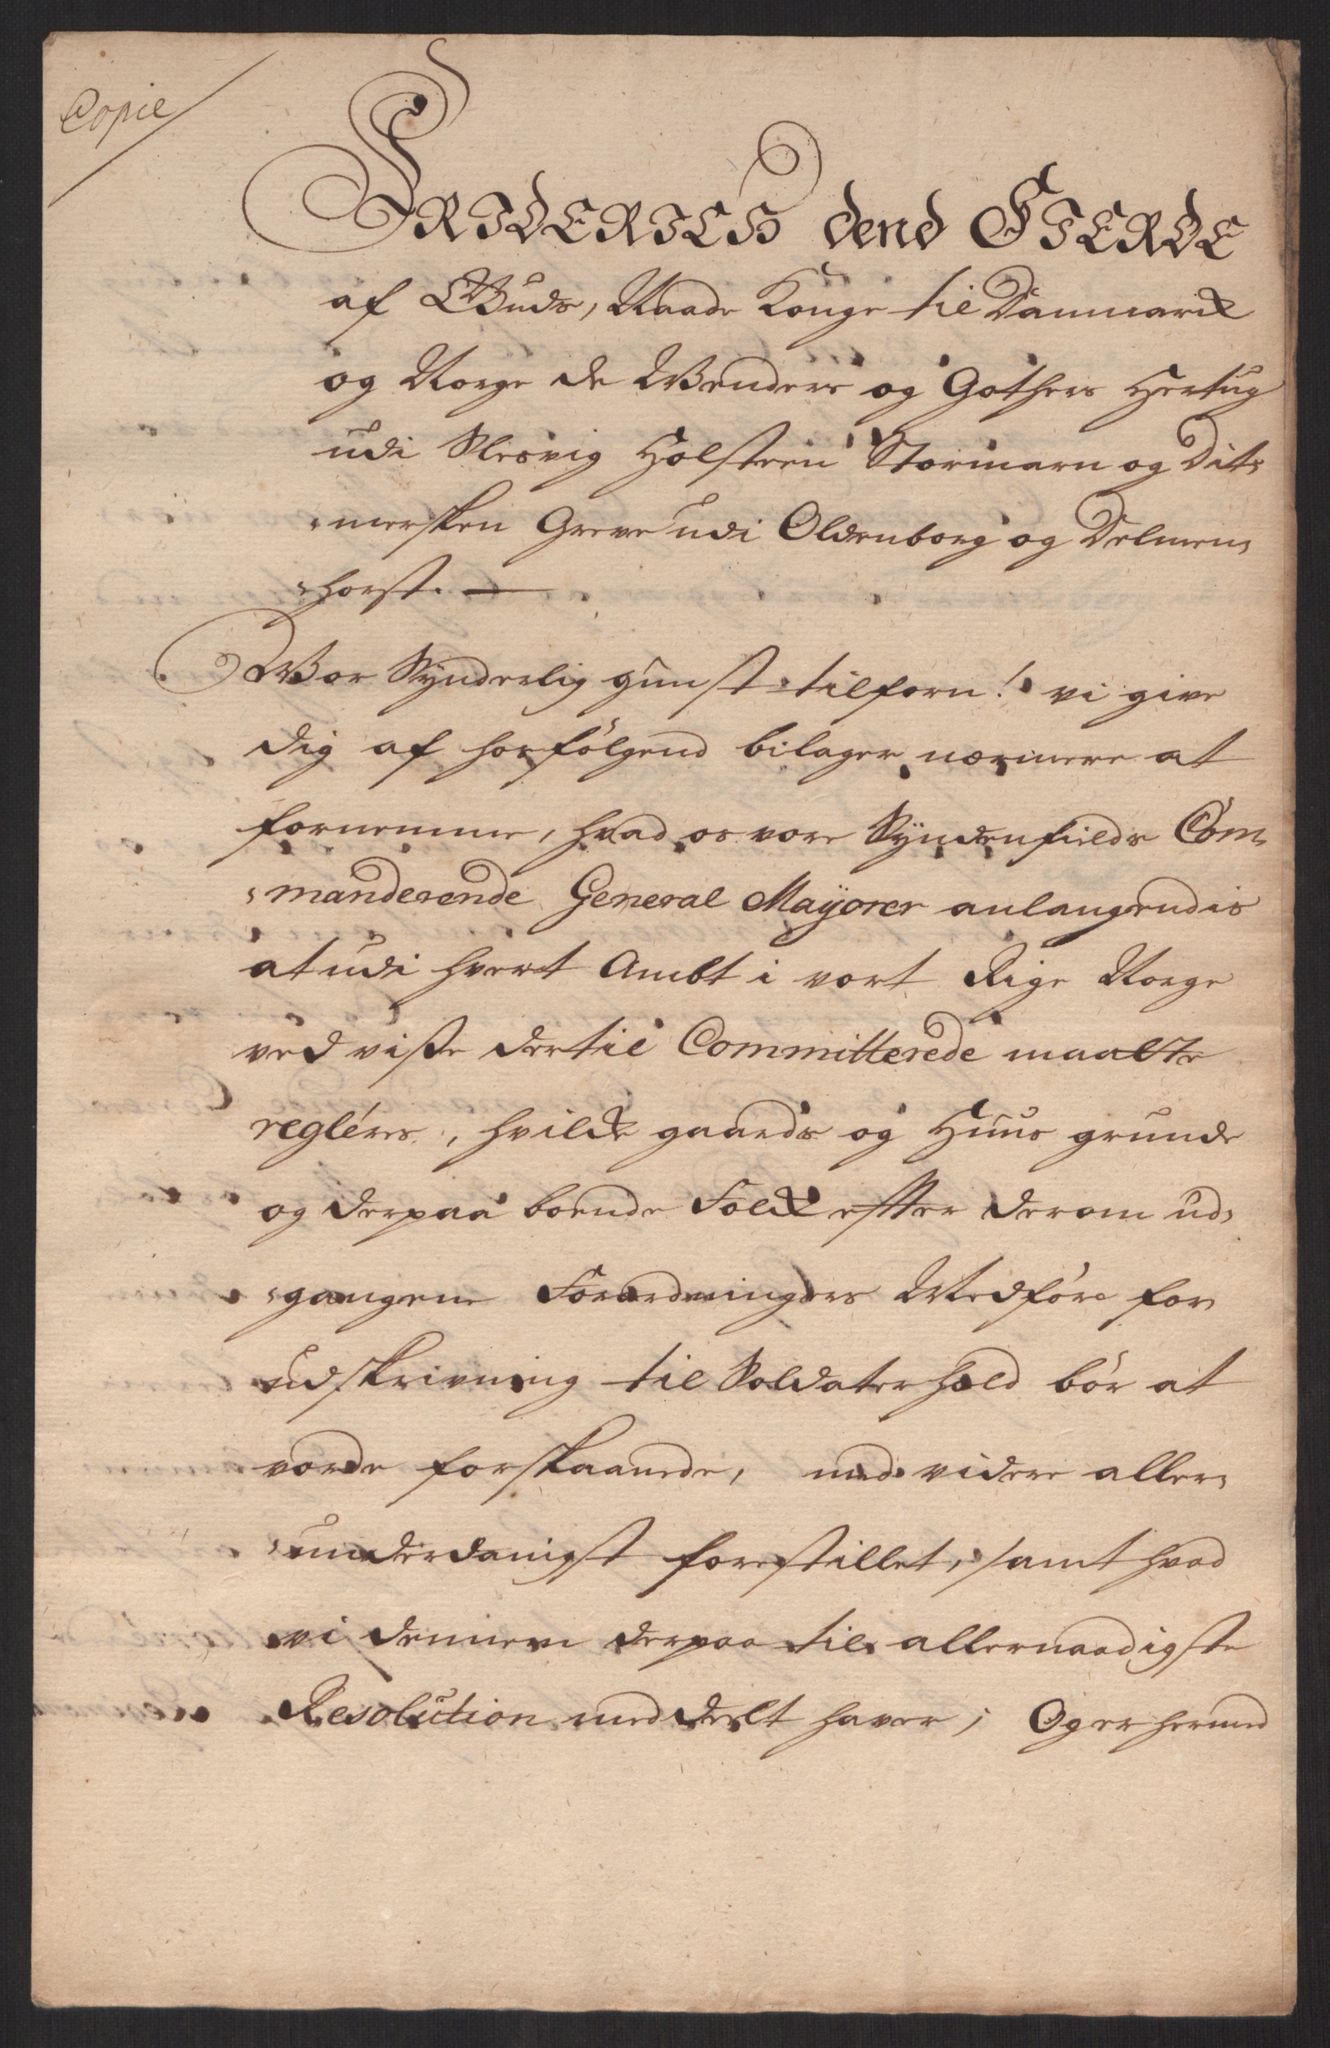 Copie
FRIDERICH dend FIERDE
af Guds, Naade Konge til Danmark
og Norge de Wenders og Gothers Hertug
udi Slesvig Holsteen Stormarn og Dit-
-mersken Greve udi Oldenborg og Delmen-
-horst. —
Vor Synderlig gunst tilforn! vi give
dig af hosfölgend bilager nærmere at
fornemme, hvad os vore Syndenfields Com-
-manderende General Mayorer anlangendis
at udi hvert Ambt i vort Rige Norge
ved visse dertil Committerede maatte
regléres, hvilcke gaards og Huus grunde
og derpaa boende Folck effter derom ud-
-gangene Forordningers Medföre for
udskrivning til Soldaterhold bör at
vorde forskaanede, med videre aller-
-underdanigst forestillet, samt hvad
vi dennem derpaa til allernaadigste
Resolution meddeelt haver; Og er hermed